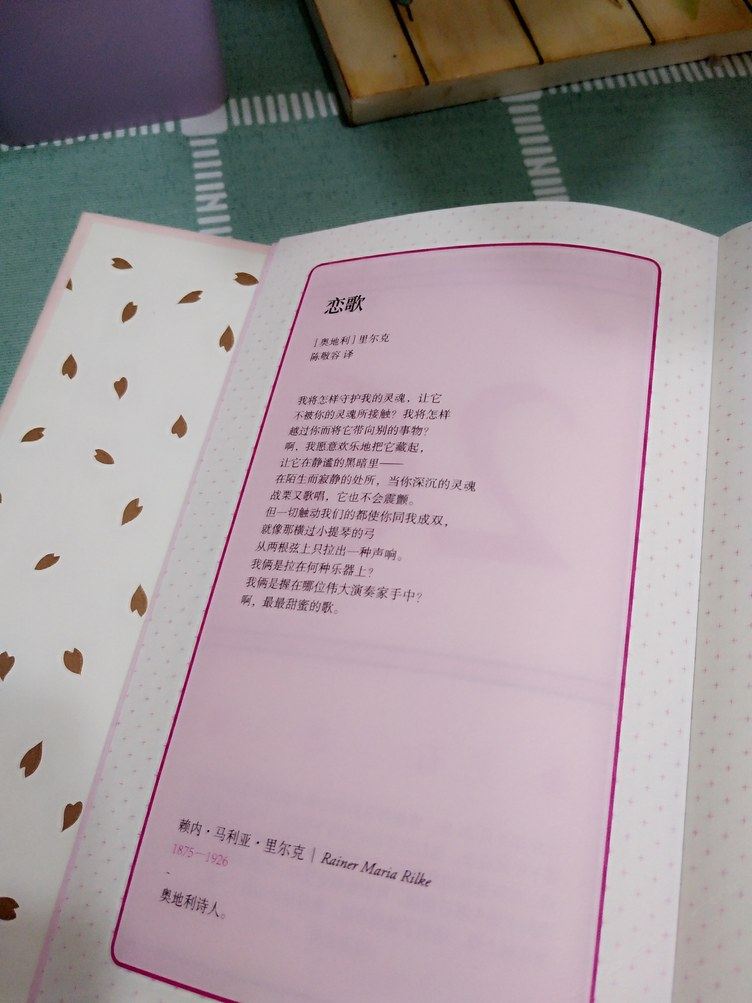 恋歌
［奥地利］里尔克
陈敬容 译
我将怎样守护我的灵魂，让它
不被你的灵魂所接触？我将怎样
越过你而将它带向别的事物？
啊，我愿意欢乐地把它藏起，
让它在静谧的黑暗里——
在陌生而寂静的处所，当你深沉的灵魂
战栗又歌唱，它也不会震颤。
但一切触动我们的都使你同我成双，
就像那横过小提琴的弓
从两根弦上只拉出一种声响。
我俩是拉在何种乐器上？
我俩是握在哪位伟大演奏家手中？
啊，最最甜蜜的歌。
赖内·马利亚·里尔克｜Rainer Maria Rilke
1875—1926
-
奥地利诗人。